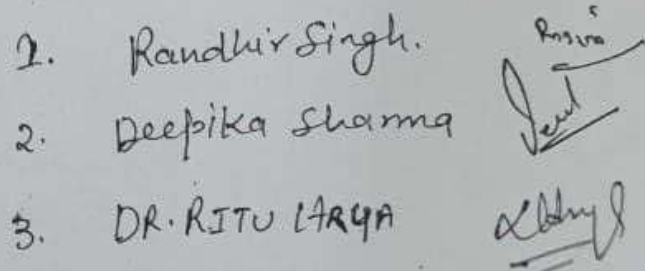 1. Randhir Singh.
2. Deepika Sharma
3. DR. RITU ARYA